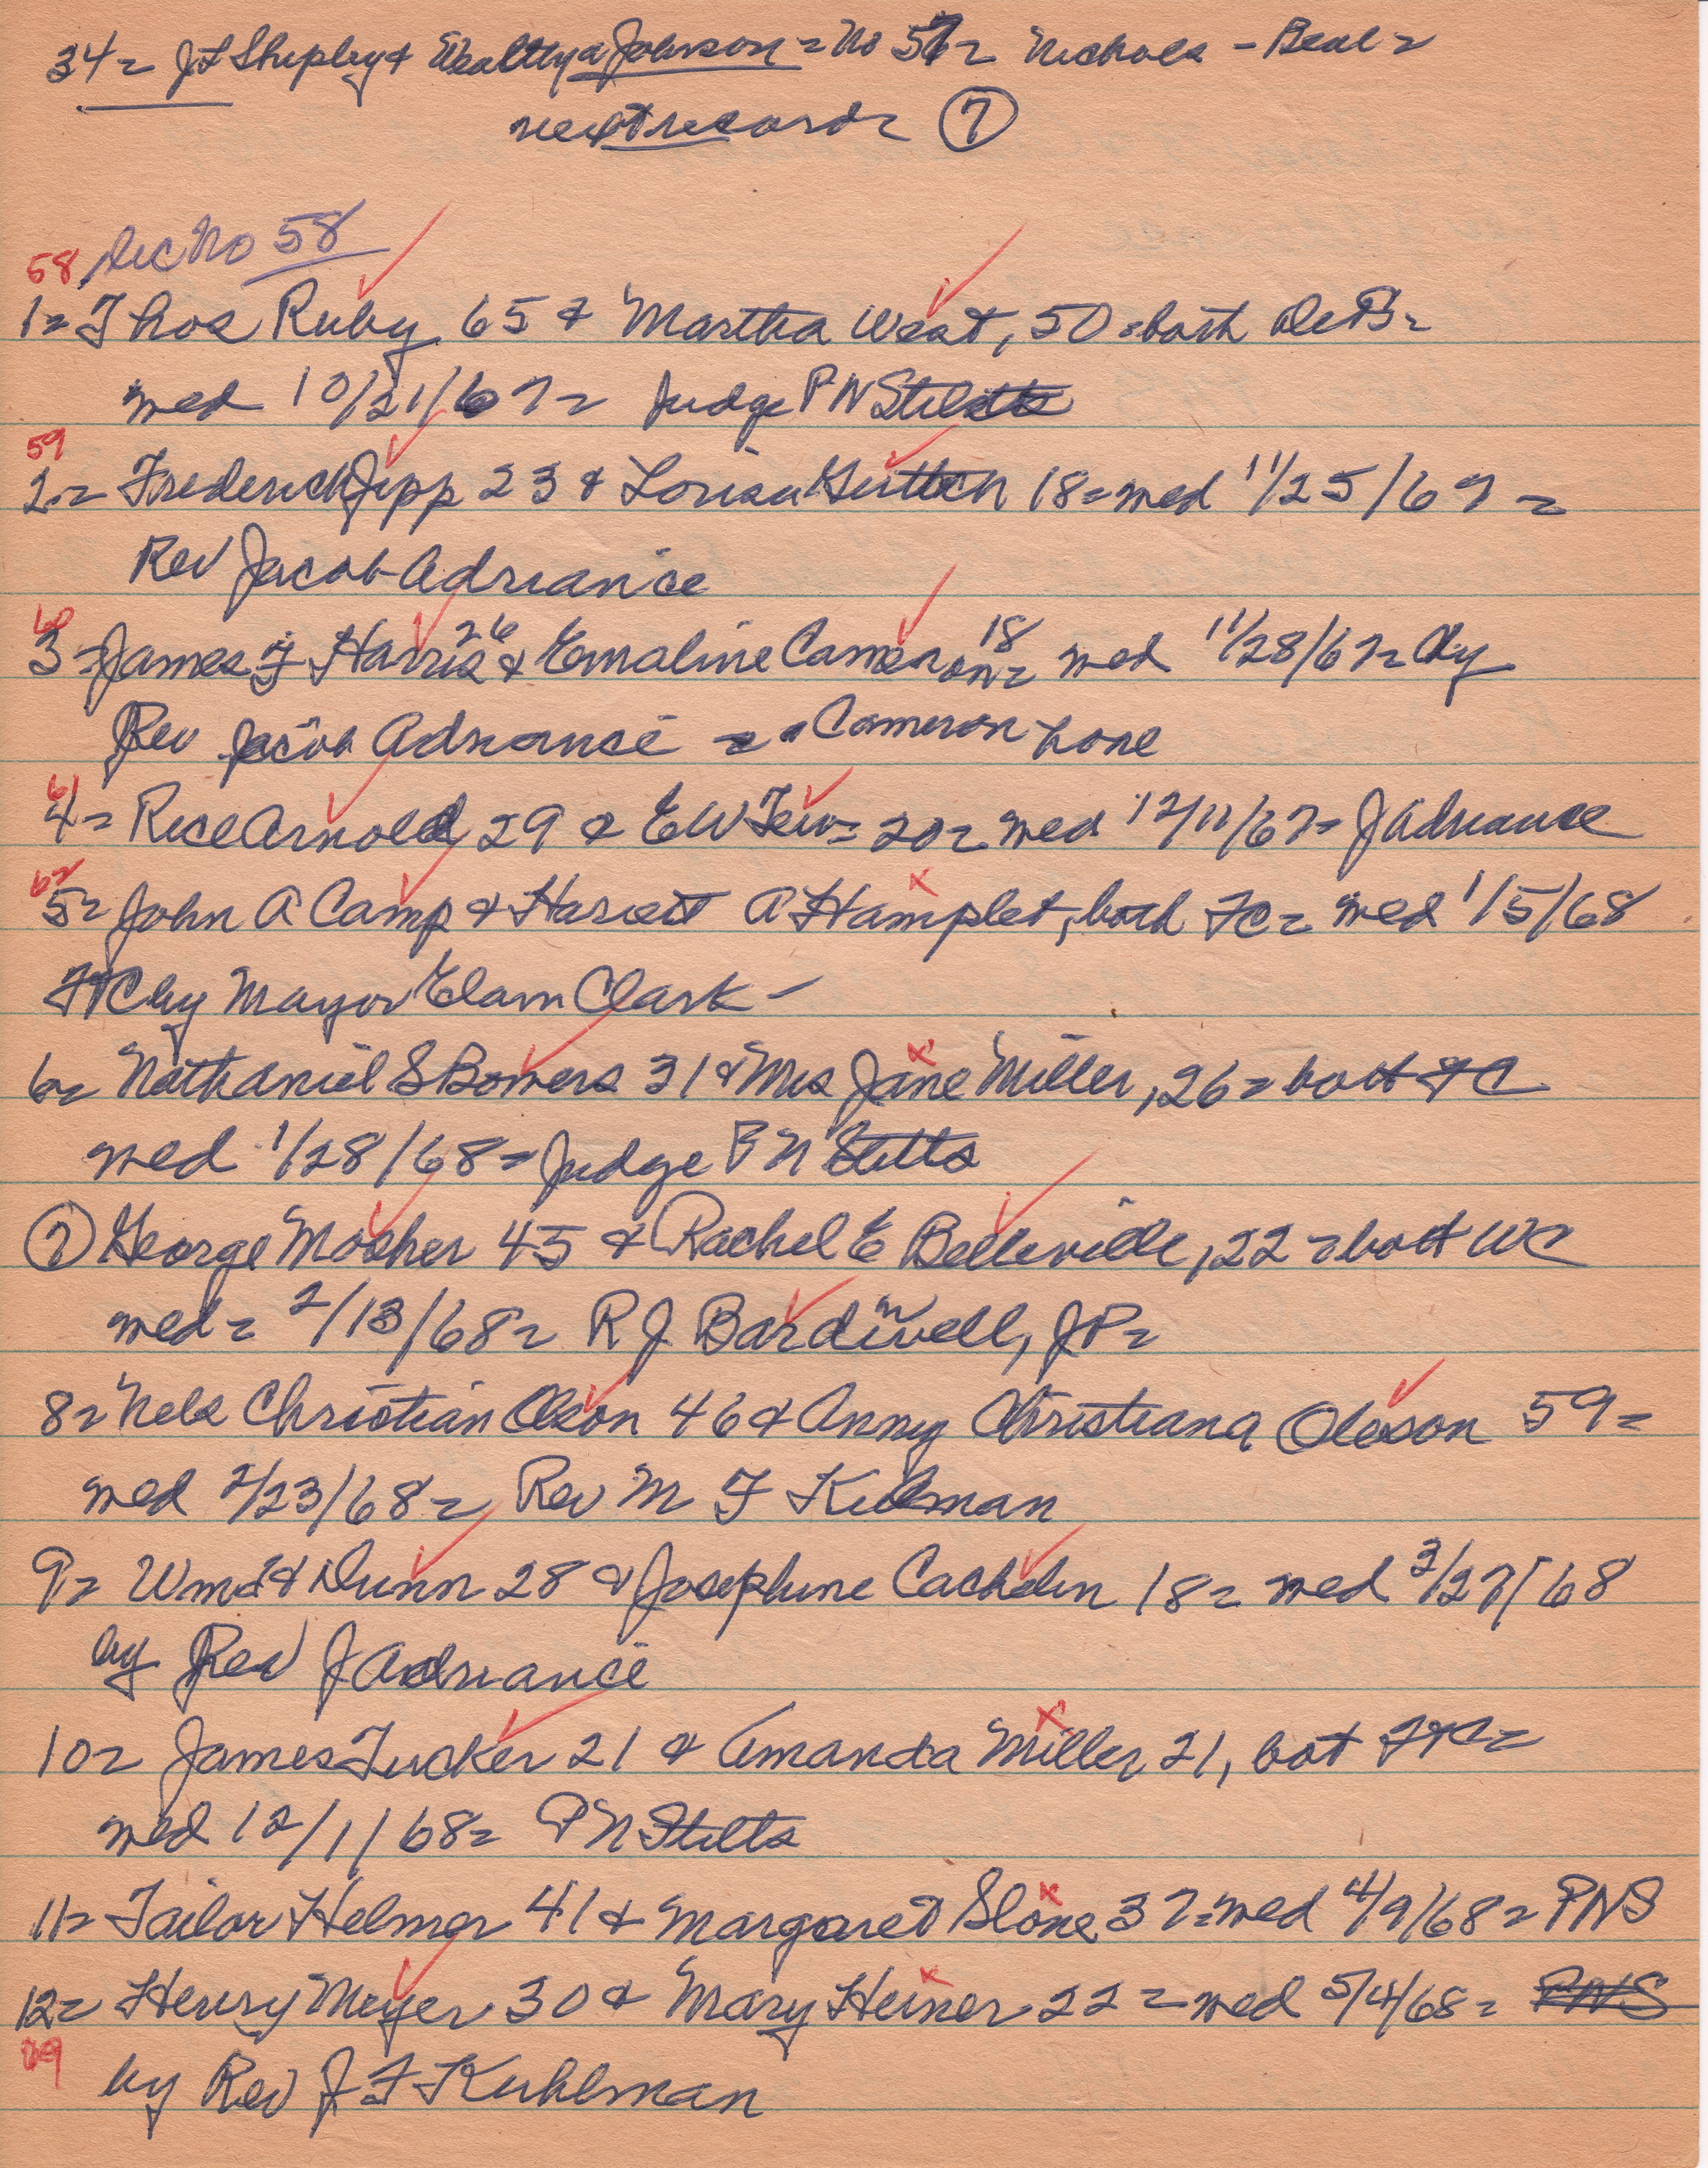 34= JF Shipley & Wealthy a Johnson = No 57= Nichols - Beal=
next record= 7
58 Rec No 58
1= Thos Ruby 65 & Martha West, 50 = both DeB=
med 10/21/67= Judge P N Stilts
59
2.= Frederick Jipp 23 & Lorisa 18= med 11/25/67=
Rev Jacob Adriance
60
3= James F Harris 26 & Emaline Cameron 18= med 11/28/67= By
Rev Jacob Adriance = Cameron home
61
4= Rice Arnold 29 & E W Tew= 20= med 12/11/67= J Adriance
62
5= John A Camp & Hariett A Hamplet, both FC= med 1/5/68
FtC by Mayor Elam Clark -
6= Nathaniel S Bowers 31 & Mrs Jane Miller, 26= both FC
med 1/28/68= Judge P N Stilts
7 George Mosher 45 & Rachel E Belleville, 22= both WC
med= 2/13/68= R J Bardwell, JP=
8= Nels Christian Olson 46 & Anny Christiana Oleson 59=
med 2/23/68= Rev M F Kulman
9= Wm Dunn 28 & Josephine Cachelin 18= med 3/27/68
by Rev J Adriance
10= James Tucker 21 & Amanda Miller 21, bot FtC=
med 12/1/68= P N Stilts
11= Tailor Helmer 41 & Margaret Slone 37= med 4/9/68= PNS
12= Henry Meyer 30 & Mary Heiner 22= med 5/4/68= PNS
69
by Rev J F Kuhlman